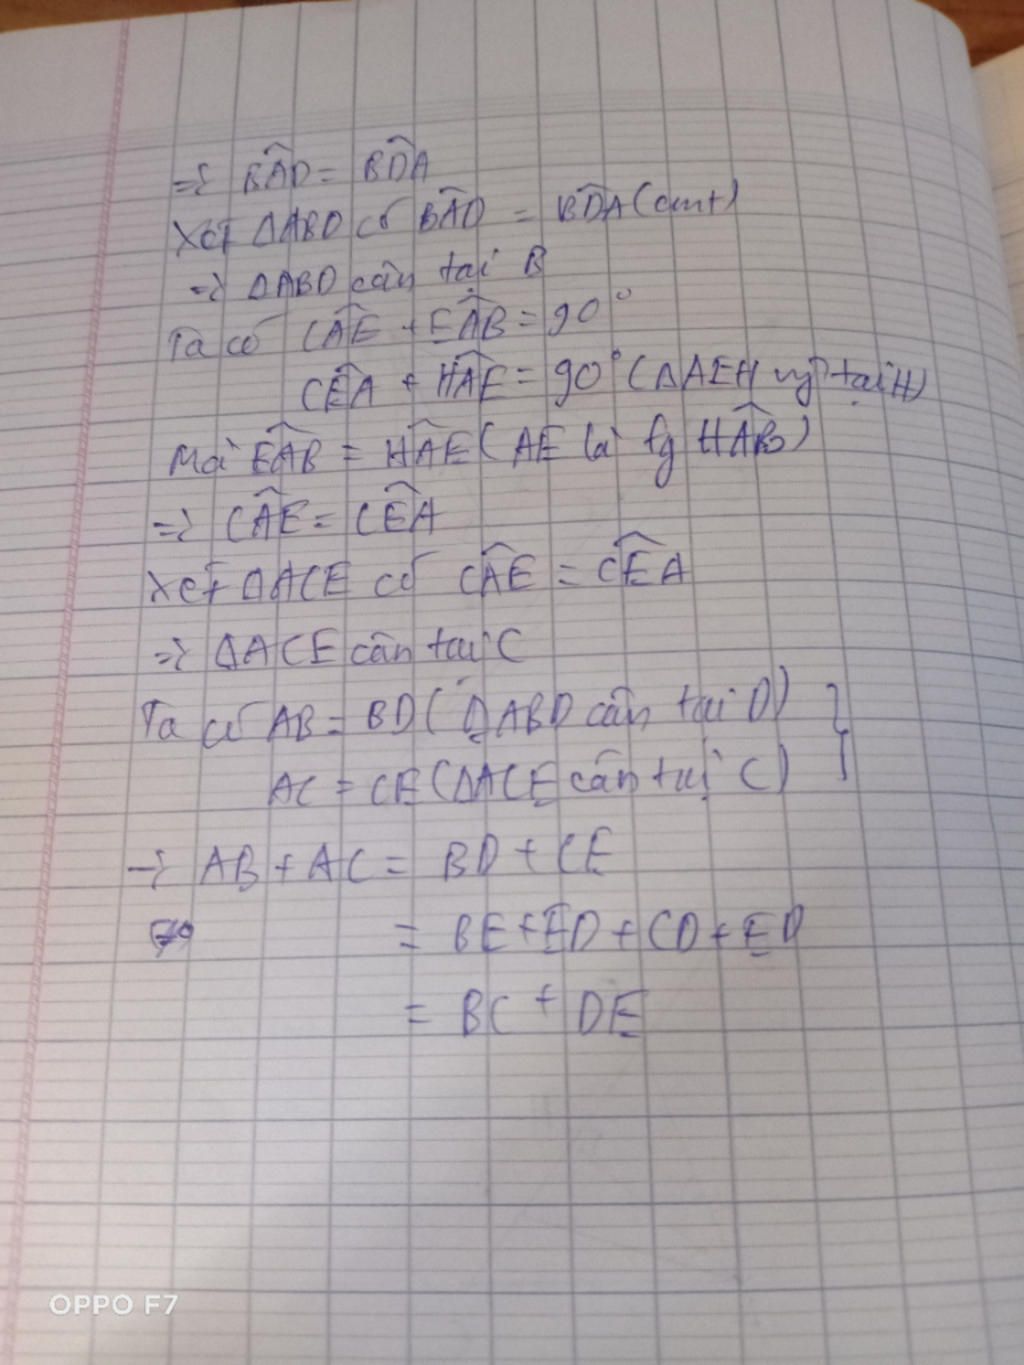 => BÂD = BD̂A
Xét ΔABD có BÂD = BD̂A (cmt)
=> ΔABD cân tại B
Ta có CÂE + EÂB = 90°
CÊA + HÂE = 90° (ΔAEH vg tại H)
Mà EÂB = HÂE (AE là fg HÂB)
=> CÂE = CÊA
Xét ΔACE có CÂE = CÊA
=> ΔACE cân tại C
Ta có AB = BD (ΔABD cân tại D) }
AC = CE (ΔACE cân tại C)
-> AB + AC = BD + CE
= BE + ED + CD + ED
= BC + DE
OPPO F7